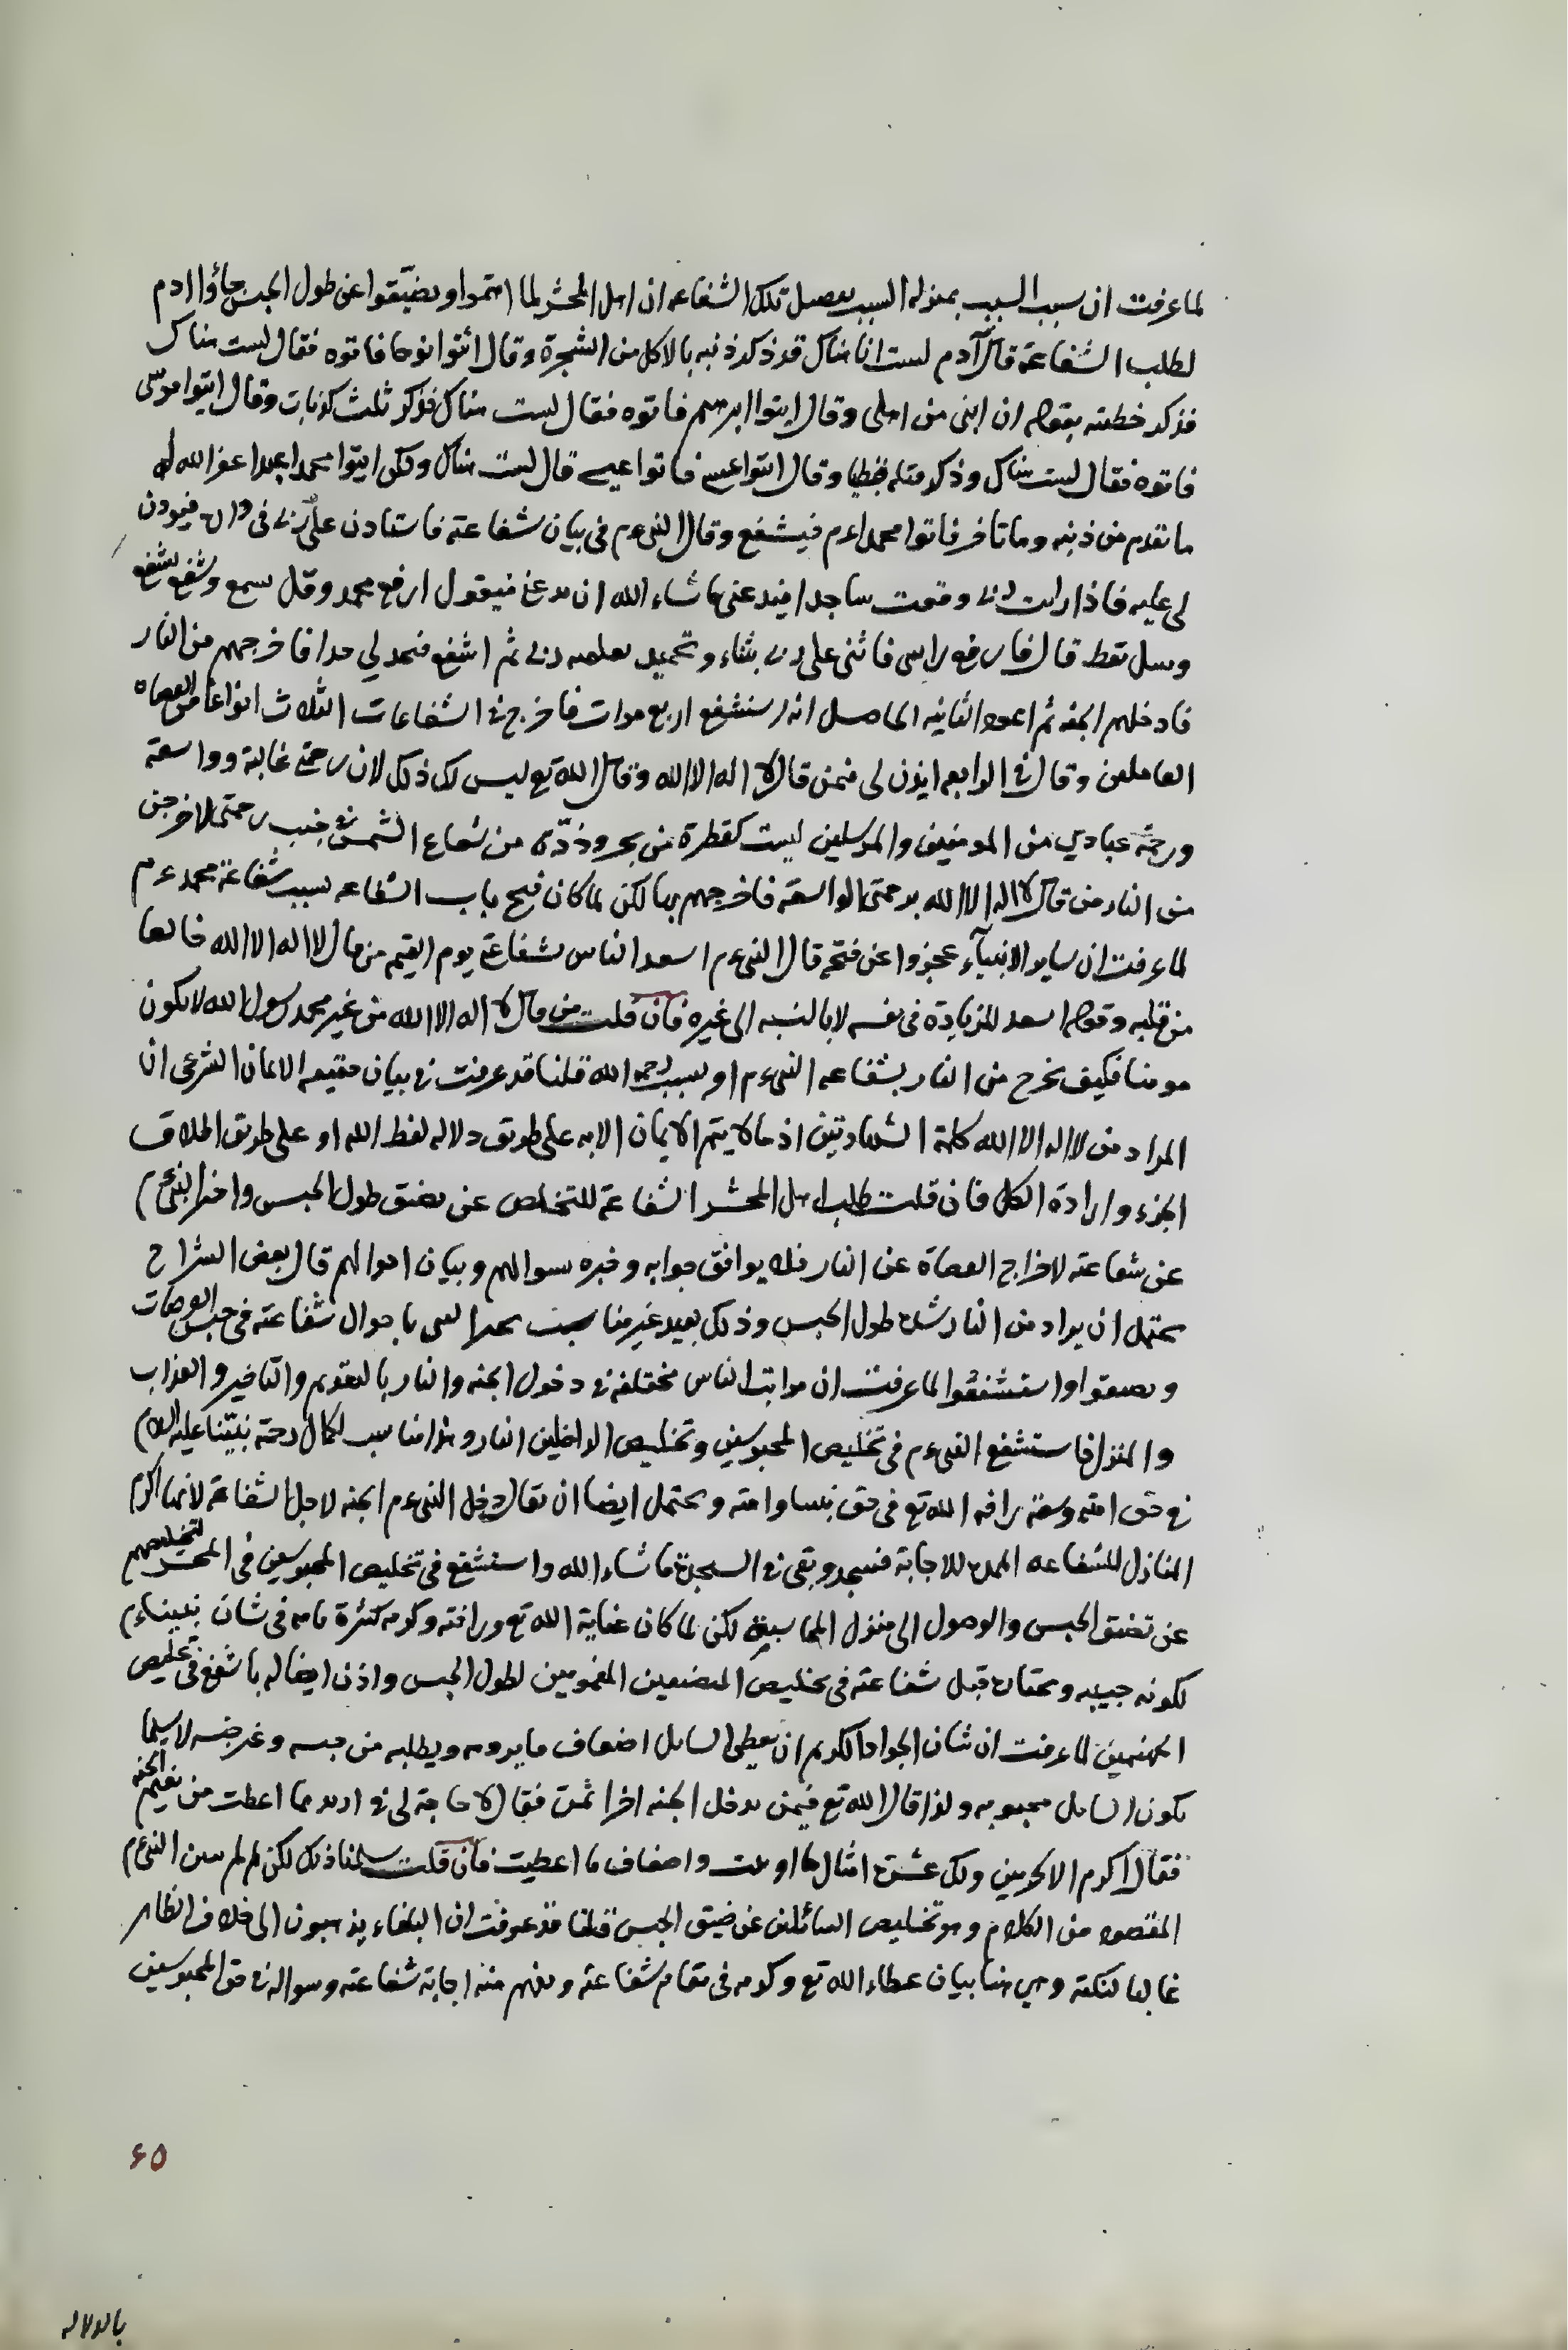 لما عرفت ان سبب السبب بمنزله السبب تفصيل تلك الشفاعه ان اهل المحشر لما اهتموا وتضيقوا عن طول الحبس جاؤا ادم
لطلب الشفاعة قال آدم لست انا هناك قد ذكر ذنبه بالاكل من الشجرة وقال ائتوا نوحا فاتوه فقال لست هناك
فذكر خطئته بقوله ان ابنى من اهلى وقال ايتوا ابرهيم فاتوه فقال لست هناك فذكر ثلث كذبات وقال ايتوا موسى
فاتوه فقال لست هناك وذكر قتله خطا وقال ايتوا عيسى فاتوا عيسى قال لست هناك ولكن ايتوا محمدا عبدا غفر الله له
ما تقدم من ذنبه وما تاخر فاتوا محمدا عم فيشفع وقال النبى عم فى بيان شفاعته فاستاذن على ربى فى داره فيوذن
لى عليه فاذا رايت ربى وقعت ساجدا فيدعنى ما شاء الله ان يدعنى فيقول ارفع محمد وقل يسمع وشفع يشفع
وسل تعط قال فارفع راسى فاثنى على ربى بثناء وتحميد يعلمنيه ربى ثم اشفع فيحد لي حدا فاخرجهم من النار
فادخلهم الجنه ثم اعود الثانيه الحاصل انه استشفع اربع مرات فاخرج فى الشفاعات الثلاث انواعا من العصاه
العاملين وقال فى الرابعه ايذن لى فيمن قال لا اله الا الله وقال الله تع ليس لك ذلك لان رحمتى غالبة وواسعة
ورحمة عبادي من المومنين والمرسلين ليست كقطرة من بحر وذرة من شعاع الشمس فى جنب رحمتى لاخرجن
من النار من قال لا اله الا الله برحمتى الواسعة فاخرجهم بها لكن لما كان فتح باب الشفاعه بسبب شفاعة محمد عم
لما عرفت ان ساير الانبياء عجزوا عن فتحه قال النبى عم اسعد الناس بشفاعتى يوم القيمه من قال لا اله الا الله خالصا
من قلبه وقوله اسعد للزيادة فى نفسه لا بالنسبه الى غيره فان قلت من قال لا اله الا الله من غير محمد رسول الله لا يكون
مومنا فكيف يخرج من النار بشفاعه النبى عم او بسبب رحمه الله قلنا قد عرفت فى بيان حقيقه الايمان الشرعى ان
المراد من لا اله الا الله كلمة الشهادتين اذ حالا يتم الايمان الا به على طريق دلاله لفظ الله او على طريق اطلاق
الجزء وارادة الكل فان قلت طلب اهل المحشر الشفاعة للتخلص عن تضيق طول الحبس واخبر النبى عم
عن شفاعته لاخراج العصاة عن النار فلا يوافق جوابه وخبره سوالهم وبيان احوالهم قال بعض الشراح
يحتمل ان يراد من النار شدة طول الحبس وذلك بعيد غير مناسبت باحوال شفاعته فى حبس العرصات
واستشفعوا لما عرفت ان مراتب الناس مختلفه فى دخول الجنه والنار بالتقديم والتاخير والعذاب
والمنزل فاستشفع النبى عم فى تخليص المحبوسين وتخليص الداخلين النار وهذا مناسب لكمال رحمة نبينا عليه السلام
فى حق امته وسعة رافه الله تع فى حق نبينا وامته ويحتمل ايضا ان يقال دخل النبى عم الجنه لاجل الشفاعة لانها اكرم
المنازل للشفاعه للاجابة فسجد وبقى فى السجدة ما شاء الله واستشفع فى تخليص المحبوسين فى المحشر لتخليصهم
عن تضيق الحبس والوصول الى منزل المحاسبة لكن لما كان عناية الله تع ورافته وكرمه كثرة تامه فى شان نبينا عم
لكونه حبيبه ومختاره قبل شفاعته فى تخليص المضيقين المغمومين لطول الحبس واذن ايضا له باشفع فى تخليص
الجهنمين لما عرفت ان شان الجواد الكريم ان يعطى السايل اضعاف ما يرومه ويطلبه من حبسه وغرضه لا سيما
يكون السايل محبوبه ولذا قال الله تع فيمن يدخل الجنه اخرا تمن فقال لا حاجة لى فى ازيد مما اعطيت من نعيم الجنه
فقال اكرم الاكرمين ولك عشرة امثال ما اوتيت واضعاف ما اعطيت فان قلت سلمنا ذلك لكن لم لم يبين النبى عم
المقصود من الكلام وهو تخليص السائلين عن ضيق الحبس قلنا قد عرفت ان البلغاء يذهبون الى خلاف الظاهر
غالبا لنكتة وهي هنا بيان عطاء الله تع وكرمه فى مقام شفاعته ويفهم منه اجابة شفاعته وسواله فى حق المحبوسين
٤٥
بالدلاله